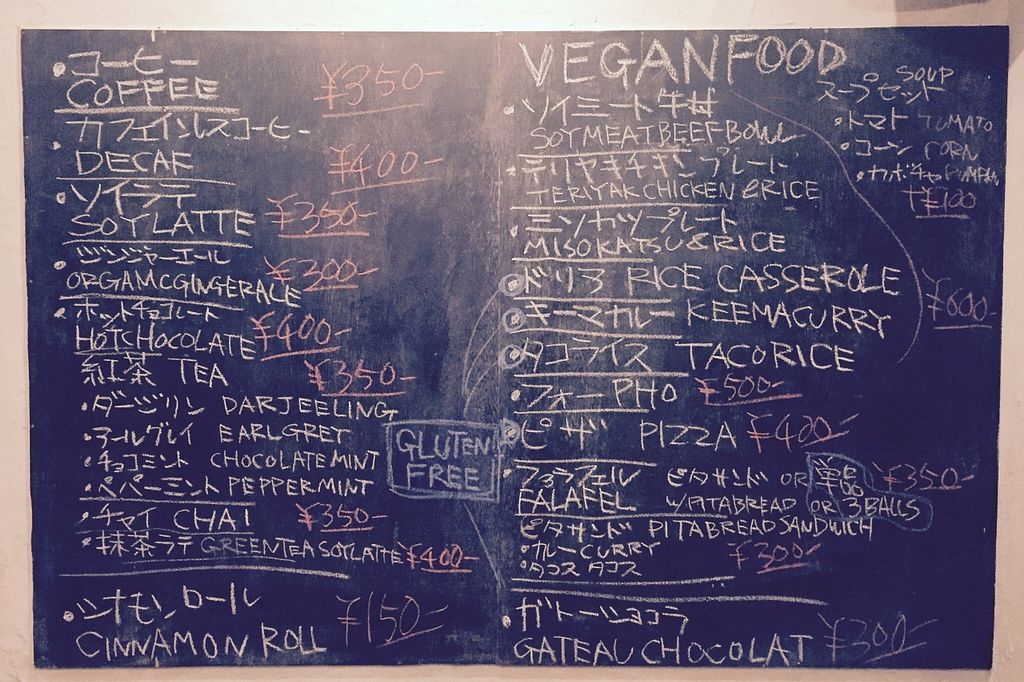 ・コーヒー
COFFEE ¥350-
カフェインレスコーヒー
DECAF ¥400-
・ソイラテ
SOYLATTE ¥350-
・ジンジャーエール ¥300-
ORGANICGINGERALE
・ホットチョコレート
HOTCHOCOLATE ¥400-
紅茶 TEA ¥350-
・ダージリン DARJEELING
・アールグレイ EARLGREY
・チョコミント CHOCOLATEMINT
・ペパーミント PEPPERMINT
・チャイ CHAI ¥350-
・抹茶ラテ GREENTEASOYLATTE ¥400-
・シナモンロール
CINNAMON ROLL ¥150-
GLUTEN
FREE
VEGANFOOD
・ソイミート牛丼
SOYMEATBEEFBOWL
・テリヤキチキンプレート
TERIYAKCHICKEN&RICE
・ミソカツプレート
MISOKATSU&RICE
・ドリア RICE CASSEROLE
・キーマカレー KEEMACURRY
・タコライス TACORICE
¥600-
・フォー PHO ¥500-
・ピザ PIZZA ¥400-
・ファラフェル ピタサンド OR 単品 ¥350-
FALAFEL W/PITABREAD OR 3BALLS
・ピタサンド PITABREADSANDWICH
・カレー CURRY ¥300-
・タコス タコス
・ガトーショコラ
GATEAUCHOCOLAT ¥300-
SOUP
スープセット
・トマト TOMATO
・コーン CORN
・カボチャ PUMPKIN
+¥100